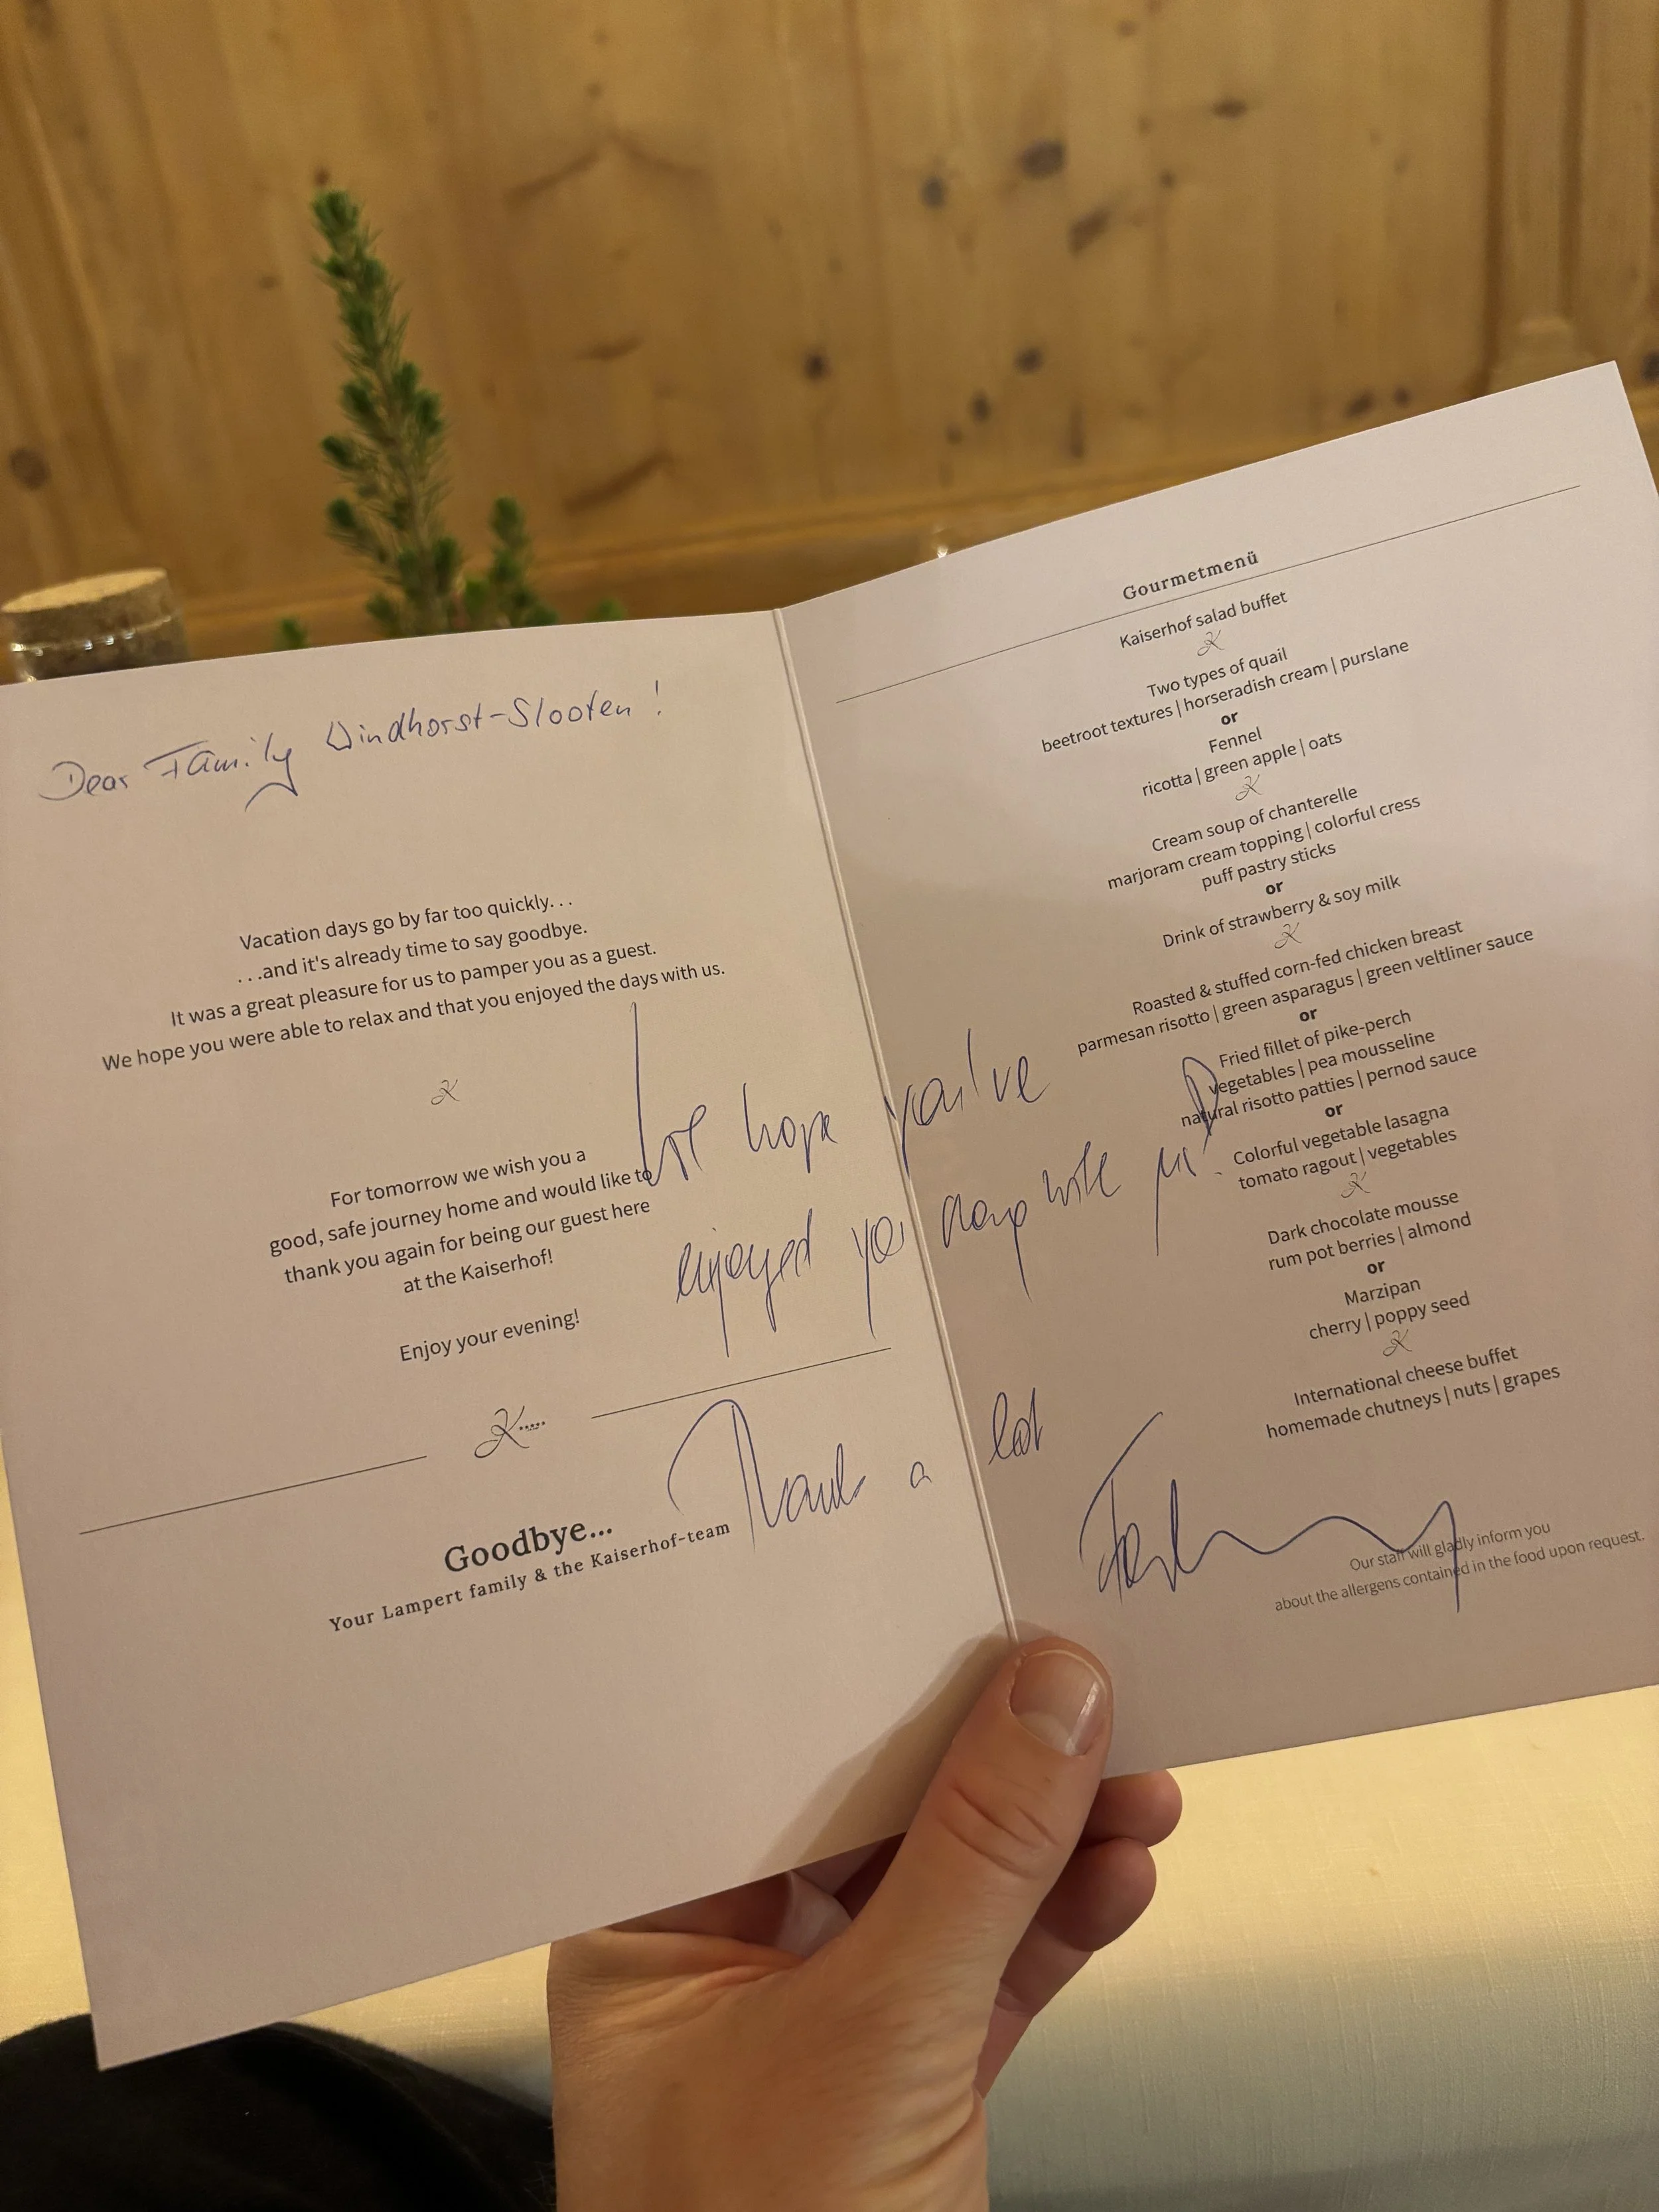 Dear Family Windhorst-Slooten!
Vacation days go by far too quickly...
...and it's already time to say goodbye.
It was a great pleasure for us to pamper you as a guest.
We hope you were able to relax and that you enjoyed the days with us.
For tomorrow we wish you a
good, safe journey home and would like to
thank you again for being our guest here
at the Kaiserhof!
Enjoy your evening!
We hope you've
enjoyed
Thank a lot
Goodbye...
Your Lampert family & the Kaiserhof-team
Gourmetmenü
Kaiserhof salad buffet
Two types of quail
beetroot textures | horseradish cream | purslane
or
Fennel
ricotta | green apple | oats
Cream soup of chanterelle
marjoram cream topping | colorful cress
puff pastry sticks
or
Drink of strawberry & soy milk
Roasted & stuffed corn-fed chicken breast
parmesan risotto | green asparagus | green veltliner sauce
or
Fried fillet of pike-perch
vegetables | pea mousseline
natural risotto patties | pernod sauce
or
Colorful vegetable lasagna
tomato ragout | vegetables
Dark chocolate mousse
rum pot berries | almond
or
Marzipan
cherry | poppy seed
International cheese buffet
homemade chutneys | nuts | grapes
Our staff will gladly inform you
about the allergens contained in the food upon request.